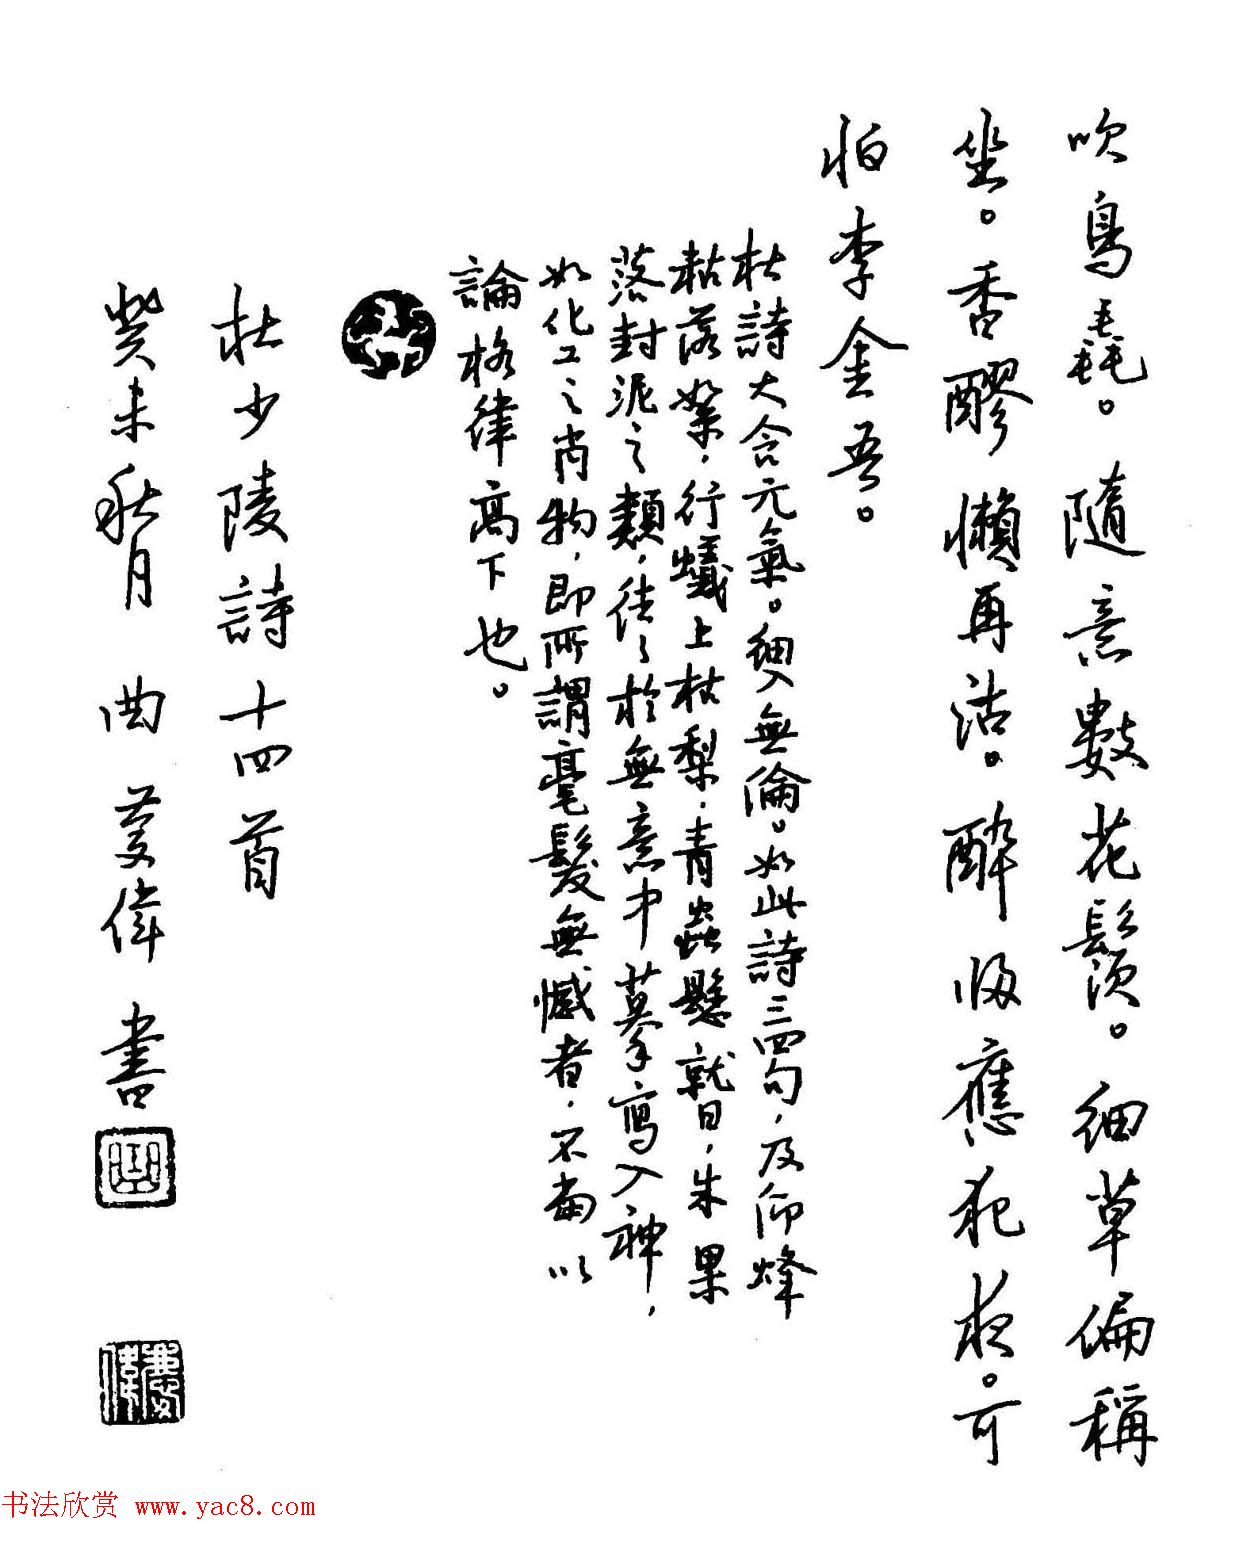 吹鳥毳。隨意數花鬚。細草偏稱
坐。香醪懶再沽。醉歸應犯夜。可
怕李金吾。
杜詩大含元氣。細入無倫。如此詩三四句，及仰蜂
粘落絮，行蟻上枯梨，青蟲懸就日，朱果
落封泥之類，往々於無意中摹寫入神，
如化工之肖物，即所謂毫髮無憾者，不當以
論格律高下也。
杜少陵詩十四首
癸未秋月 曲慶偉 書
曲
慶偉
书法欣赏 www.yac8.com